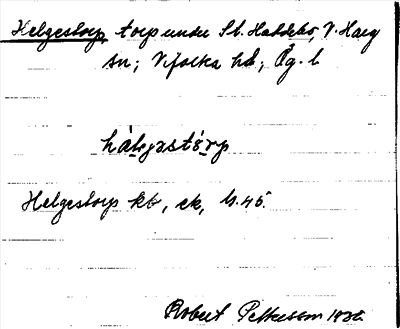 Helgestorp, torp under St. Hattebo, V. Harg
sn; Vifolka hd; Ög. l.
hálgastórp
Helgestorp kb, ek, bl. 45.
Robert Pettersson 19